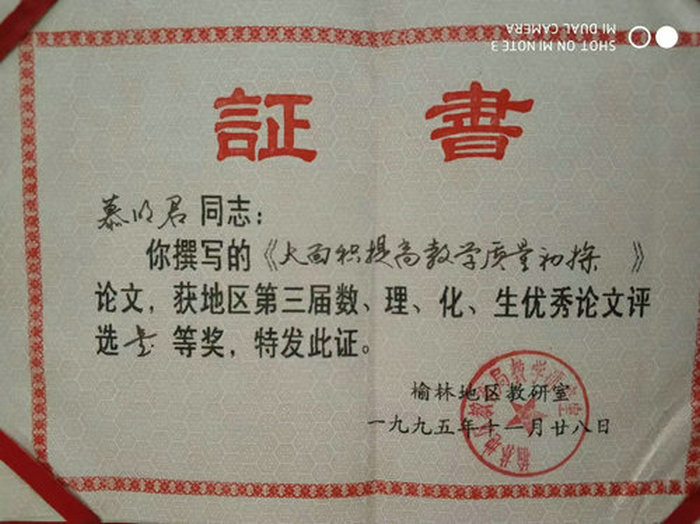 SHOT ON MI NOTE 3
MI DUAL CAMERA
証書
慕明君同志：
你撰写的《大面积提高教学质量初探》
论文，获地区第三届数、理、化、生优秀论文评
选 等奖，特发此证。
榆林地区教研室
一九九五年十一月廿八日